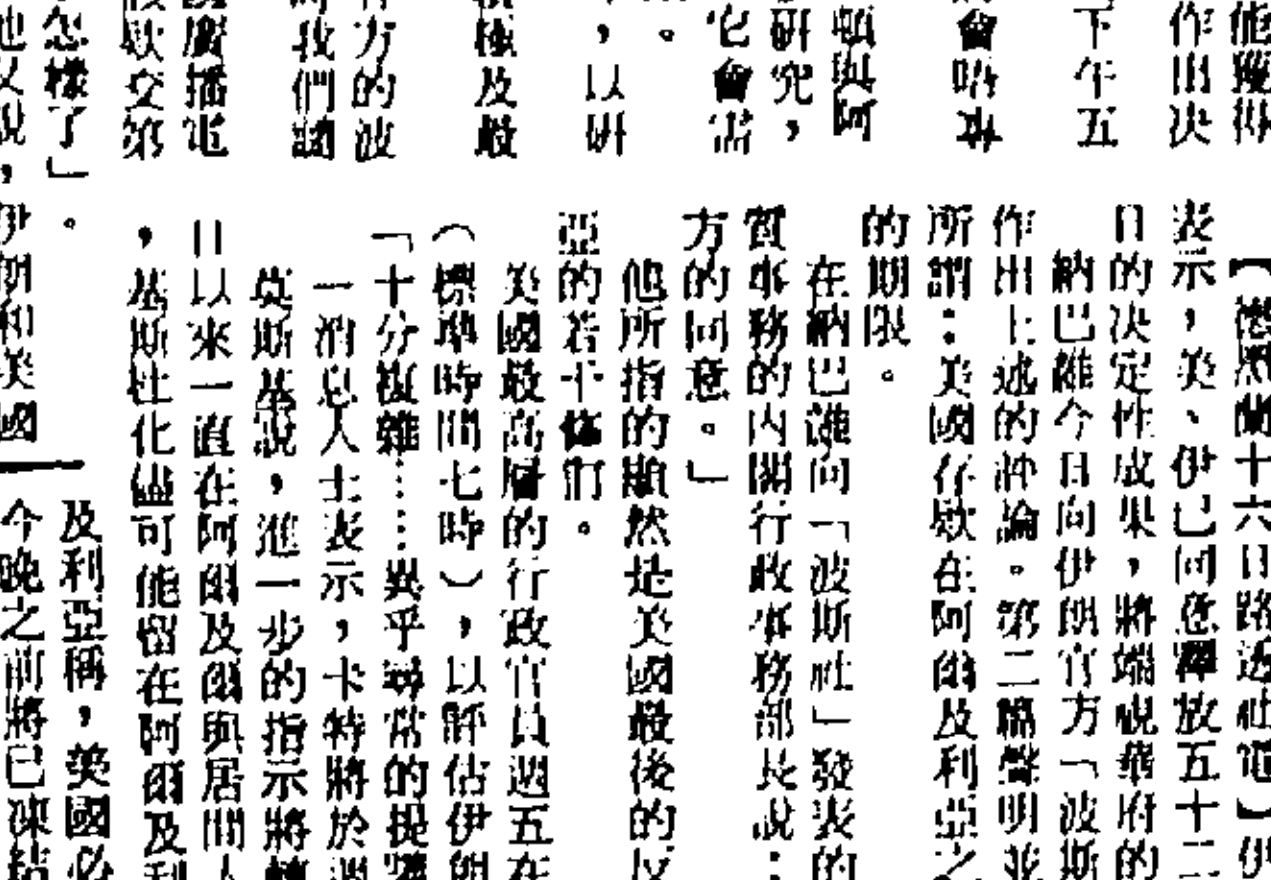 能獲得
作出决
下午五
會晤專
頓與阿
研究，
它會需
。
，以研
積極及歧
方的波
我們認
廣播電
欵交第
怎樣了」。
他又說，伊朗和美國
【德黑蘭十六日路透社電】伊
表示，美、伊已同意釋放五十二
日的决定性成果，將端視華府的
納巴維今日向伊朗官方「波斯
作出上述的評論。第二篇聲明並
所謂：美國存欵在阿爾及利亞之
的期限。
在納巴維向「波斯社」發表的
質事務的內閣行政事務部長說：
方的同意。」
他所指的顯然是美國最後的反
亞的若干條件。
美國最高層的行政官員週五在
（標準時間七時），以評估伊朗
「十分複雜……異乎尋常的提議
一消息人士表示，卡特將於週
莫斯基說，進一步的指示將轉
日以來一直在阿爾及爾與居間人
，基斯杜化儘可能留在阿爾及利
及利亞稱，美國必
今晚之前將已凍結